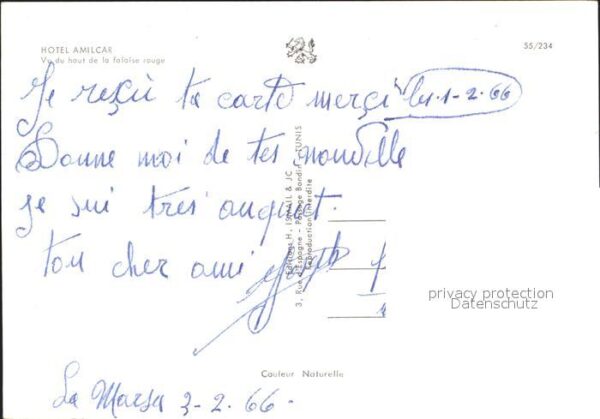 HOTEL AMILCAR
Vu du haut de la falaise rouge
55/234
Je reçu ta carte merçi les 1-2-66
Donne moi de tes nouvelle
je sui très anquiet.
ton cher ami
Editions H. ISMAIL & JC
3, Rue d'Espagne - Passage Bondin - TUNIS
Reproduction interdite
privacy protection
Datenschutz
Couleur Naturelle
La Marsa 3-2-66.